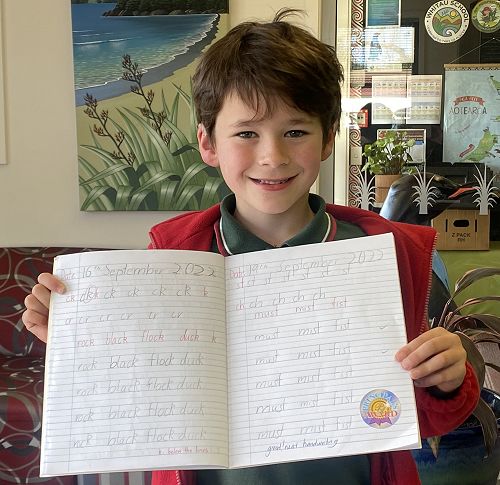 Date 16th September 2022
ck ck ck ck ck ck k
cr cr cr cr cr
rock black flock duck k
rock black flock duck
rock black flock duck
rock black flock duck
rock black flock duck
k below the lines
Date 19th September 2022
st st st st st st
ch ch ch ch ch
must mist fist
must mist fist
must mist fist
must mist fist
must mist fist
must mist fist
great neat handwriting
AWARD
AOTEAROA
Z PACK